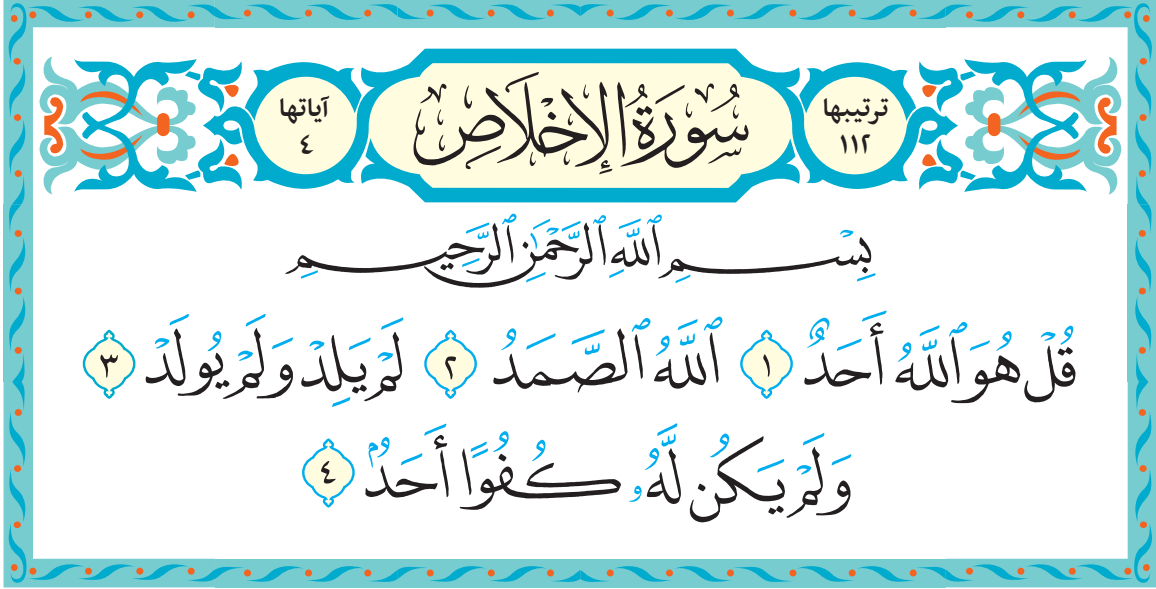 ترتيبها ١١٢ سُورَةُ الإِخْلَاصِ آياتها ٤
بِسْمِ ٱللَّهِ ٱلرَّحْمَٰنِ ٱلرَّحِيمِ
قُلْ هُوَ ٱللَّهُ أَحَدٌ ١ ٱللَّهُ ٱلصَّمَدُ ٢ لَمْ يَلِدْ وَلَمْ يُولَدْ ٣
وَلَمْ يَكُن لَّهُۥ كُفُوًا أَحَدٌۢ ٤